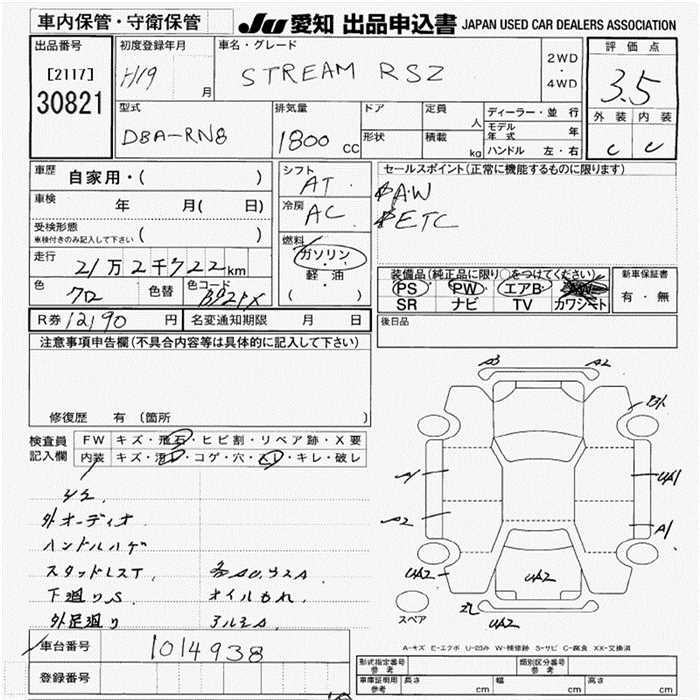 車内保管・守衛保管
JU 愛知 出品申込書 JAPAN USED CAR DEALERS ASSOCIATION
出品番号
[2117]
30821
初度登録年月
H19 月
車名・グレード
STREAM RSZ
2WD
・
4WD
評価点
3.5
外装 内装
C C
型式
DBA-RN8
排気量
1800 cc
ドア
形状
定員 人
積載 kg
ディーラー・並行
モデル年式 年
ハンドル 左・右
車歴 自家用・( )
車検 年 月( 日)
受検形態
車検付きのみ記入して下さい ( )
走行 21万2千722km
色 クロ 色替 色コード B92PX
シフト
AT
冷房
AC
燃料
ガソリン
軽・油
( )
セールスポイント(正常に機能するものに限ります)
AW
ETC
装備品(純正品に限り○をつけてください)
PS PW エアB
SR ナビ TV カワシート
新車保証書
有・無
R券 12190 円 名変通知期限 月 日
後日品
注意事項申告欄(不具合内容等は具体的に記入して下さい)
修復歴 有 (箇所
検査員記入欄
FW キズ・飛石・ヒビ割・リペア跡・X要
内装 キズ・汚レ・コゲ・穴・スレ・キレ・破レ
外オーディオ
ハンドルハゲ
スタッドレスT.
下廻りS.
オイルもれ.
外足廻り
A3 A2
B1
A1
UA1
A2
A1
UA2
UA2
UA2
スペア
A-キズ E-エクボ U-凹み W-補修跡 S-サビ C-腐食 XX-交換済
車台番号 1014938
登録番号
型式指定番号 参考
類別区分番号 参考
車庫証明用 参考
長さ cm
幅 cm
高さ cm